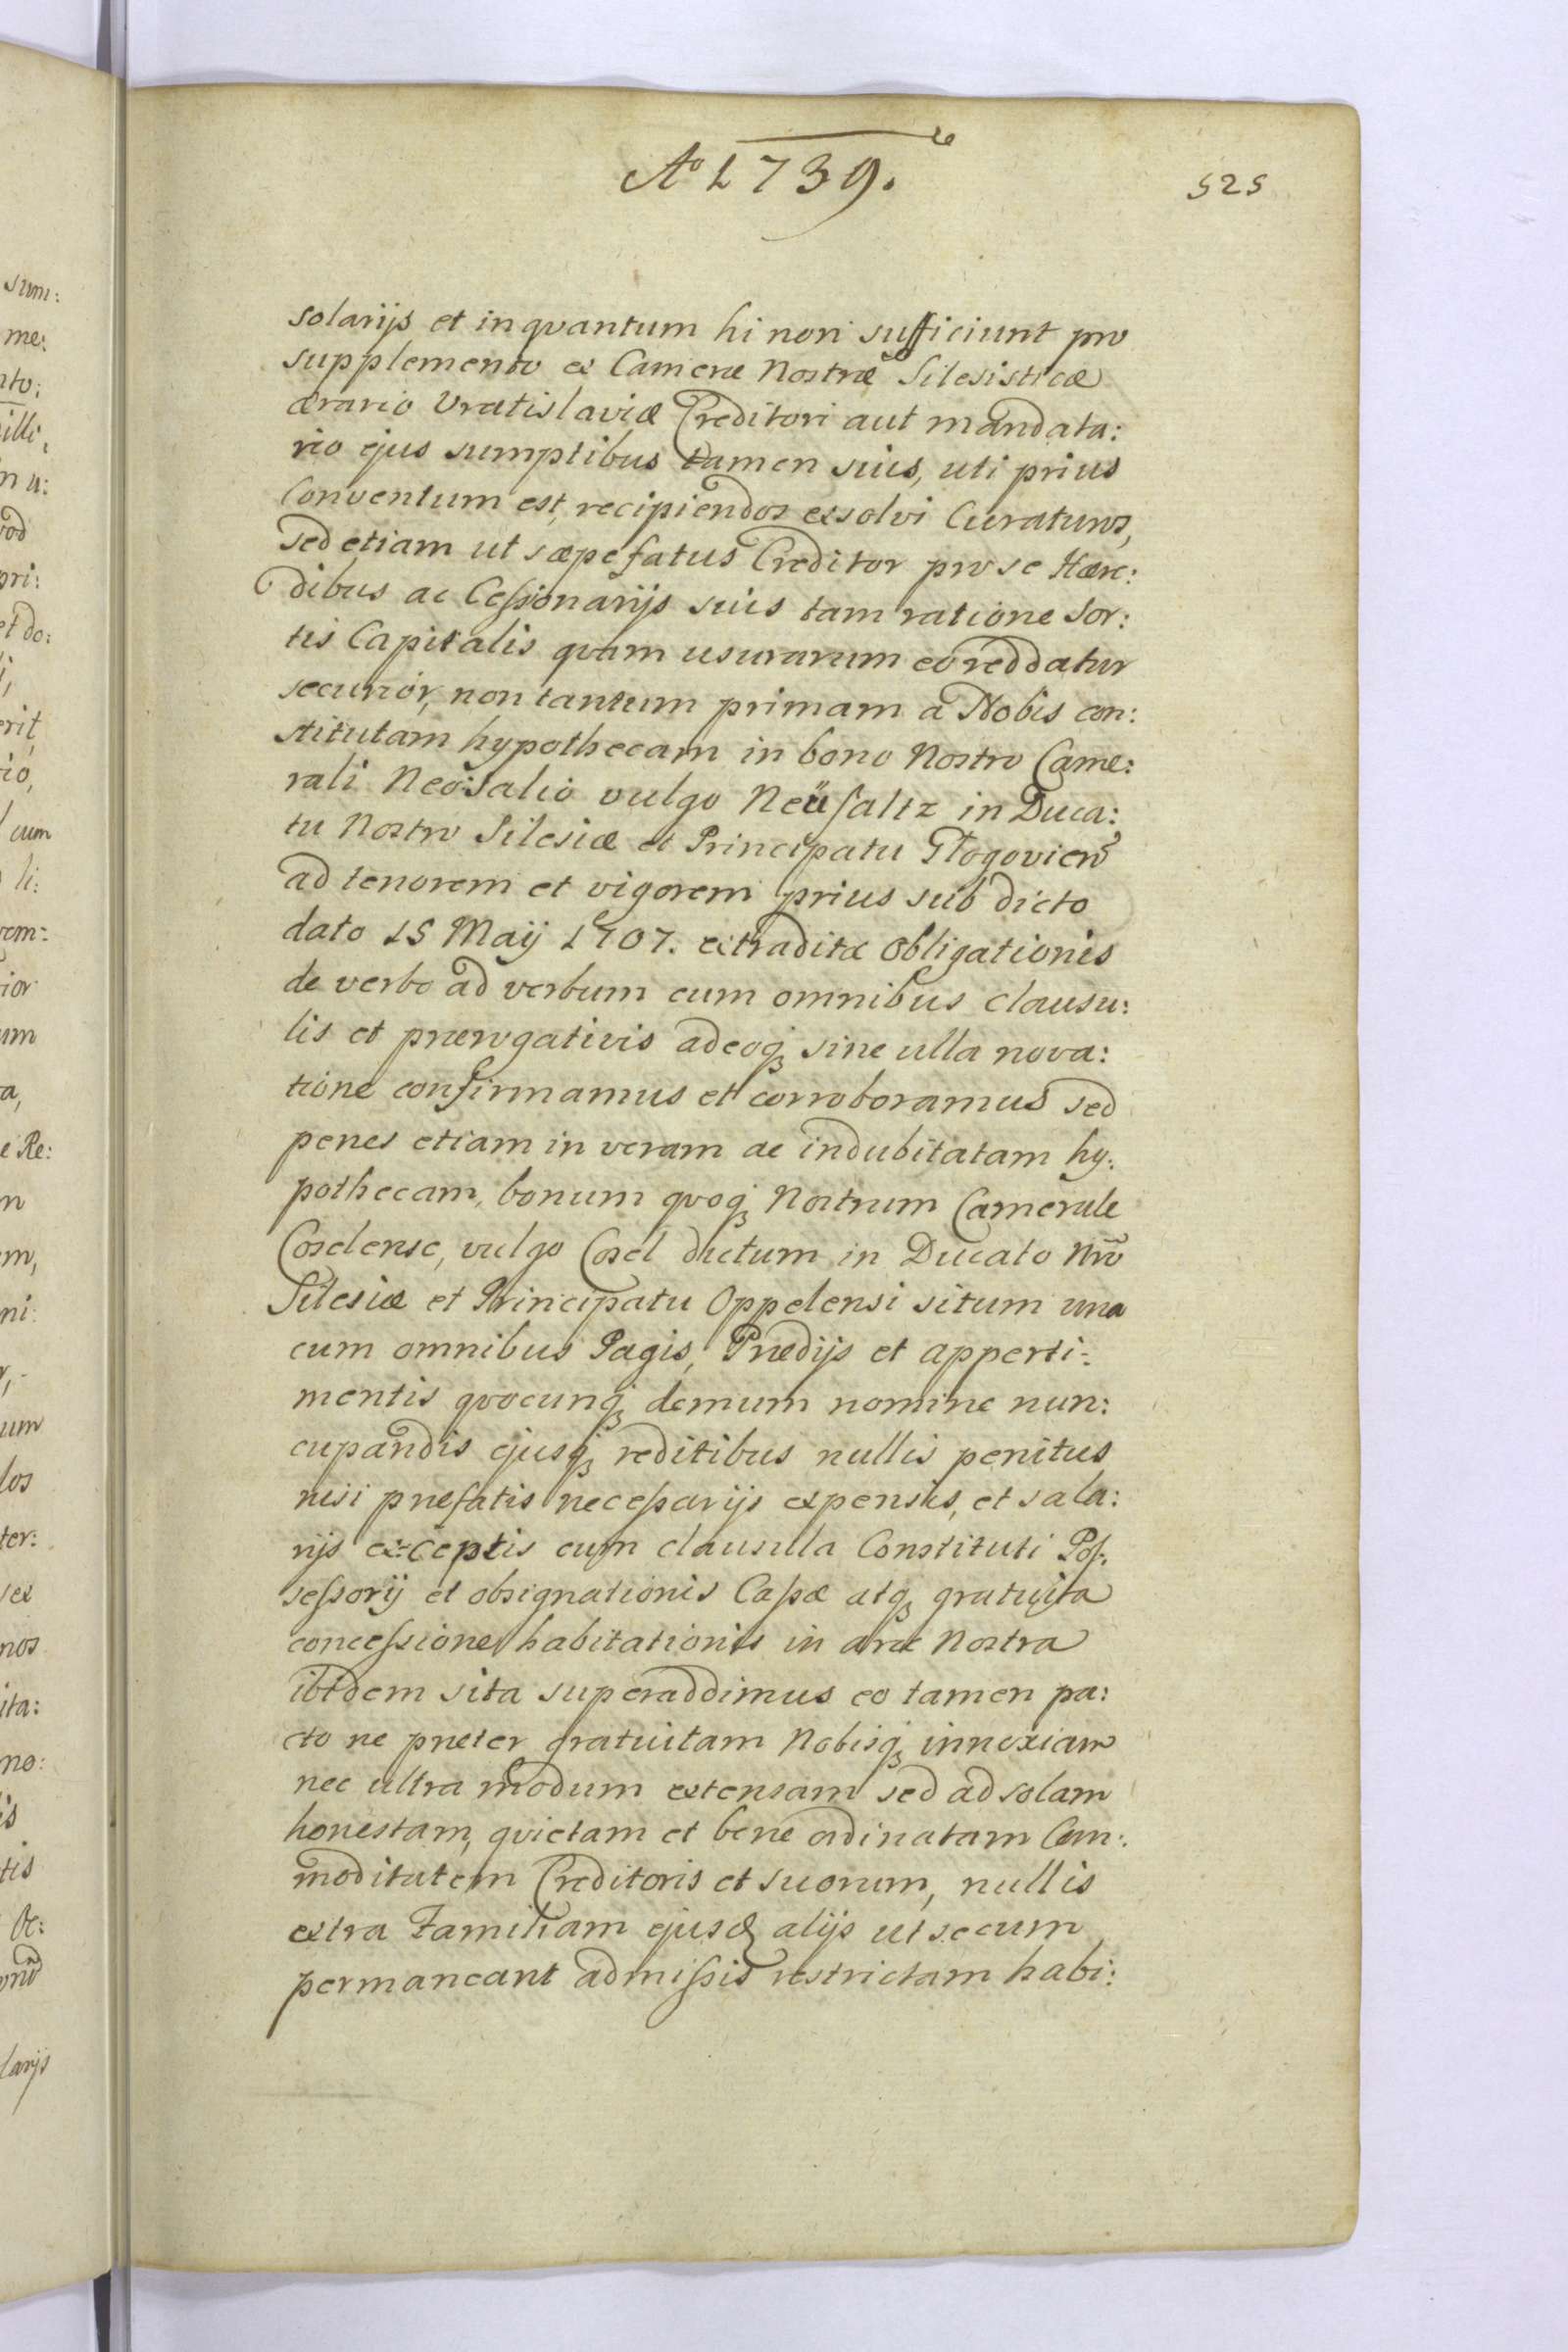 Aº 1739.
525
solarijs et in qvantum hi non sufficiunt pro
supplemento ex Cameræ Nostræ Silesisticæ
ærario Vratislaviæ Creditori aut mandata:
rio ejus sumptibus tamen suis, uti prius
Conventum est, recipiendos exsolvi Curaturos,
Sed etiam ut sæpefatus Creditor pro se Hære:
dibus ac Cessionarijs suis tam ratione Sor:
tis Capitalis qvam usurarum eo reddatur
securior, non tantum primam a Nobis con:
stitutam hypothecam in bono Nostro Came:
rali Neosalio vulgo Neüsaltz in Duca:
tu Nostro Silesiæ et Principatu Glogovien̄
ad tenorem et vigorem prius sub dicto
dato 15 Maij 1707. extraditæ Obligationis
de verbo ad verbum cum omnibus clausu:
lis et prærogativis adeoq; sine ulla nova:
tione confirmamus et corroboramus sed
penes etiam in veram ac indubitatam hy:
pothecam, bonum qvoq; Nostrum Camerale
Coselense, vulgo Cosel dictum in Ducato Nrō
Silesiæ et Principatu Oppelensi situm una
cum omnibus Pagis, Prædijs et apperti-:
mentis qvocunq; demum nomine nun:
cupandis ejusq; reditibus nullis penitus
nisi præfatis necessarijs expensis, et sala:
rijs ex:ceptis cum clausulla Constituti Pos:
sessorij et obsignationis Cassæ atq; gratuita
concessione habitationis in arce Nostra
ibidem sita superaddimus eo tamen pa:
cto ne præter gratuitam Nobisq; innoxiam
nec ultra modum extensam sed ad solam
honestam, qvietam et bene ordinatam Com:
moditatem Creditoris et suorum, nullis
extra Familiam ejusq; alijs ut secum
permaneant admissis restrictam habi:
sum:
me:
nto:
illi,
vod
pri:
et do:
erit
cum
li:
rem:
ior
um
e Re:
um
los
ter:
nos
ita:
no:
tis
larijs